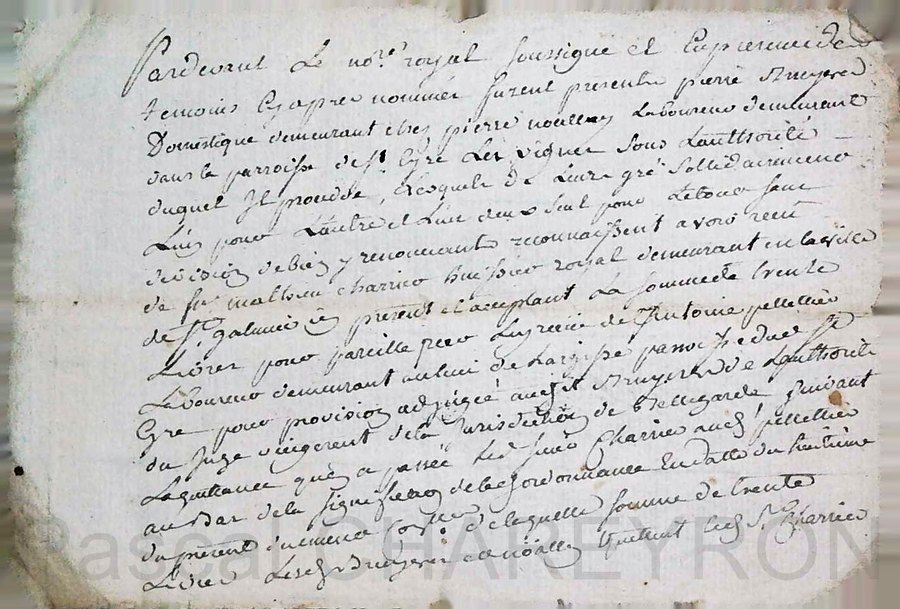 Pardevant Le no.re royal soussigné et En presence des
temoins Cy apres nommés furent presents pierre Bruyere
Domestique demeurant chez pierre noally Laboureur demeurant
dans la parroisse de St Cyre Les vignes sous Lauthorité
duquel Il procedde, Lesquels de Leurs gré sollidairement
L'un pour L'autre et L'un deux seul pour Letout sans
division de bien y renoncants reconnaissent avoir recu
de Sr mathieu charrier huissier royal demeurant en la ville
de St galmier present et acceptant La somme de trente
Livres pour pareille recu de Antoine pellellier
Laboureur demeurant au lieu de parroisse dud St
Cyre pour provision adjugée audit Bruyere de Lauthorité
du Juge vicegerent de la Jurisdiction de Bellegarde suivant
La quittance qu'en a passée Led sieur Charrier aud pellellier
au bas de la signiffication de lad ordonnance En datte du huitieme
du present de laquelle somme de trente
Livres Lesd Bruyere et noally quittent led Sr Charrier
Pascal CHAREYRON